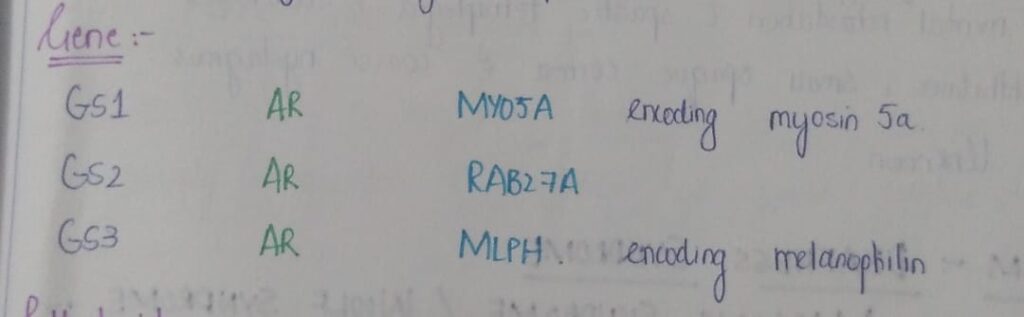 Gene :-
GS1 AR MYO5A encoding myosin 5a.
GS2 AR RAB27A
GS3 AR MLPH. encoding melanophilin